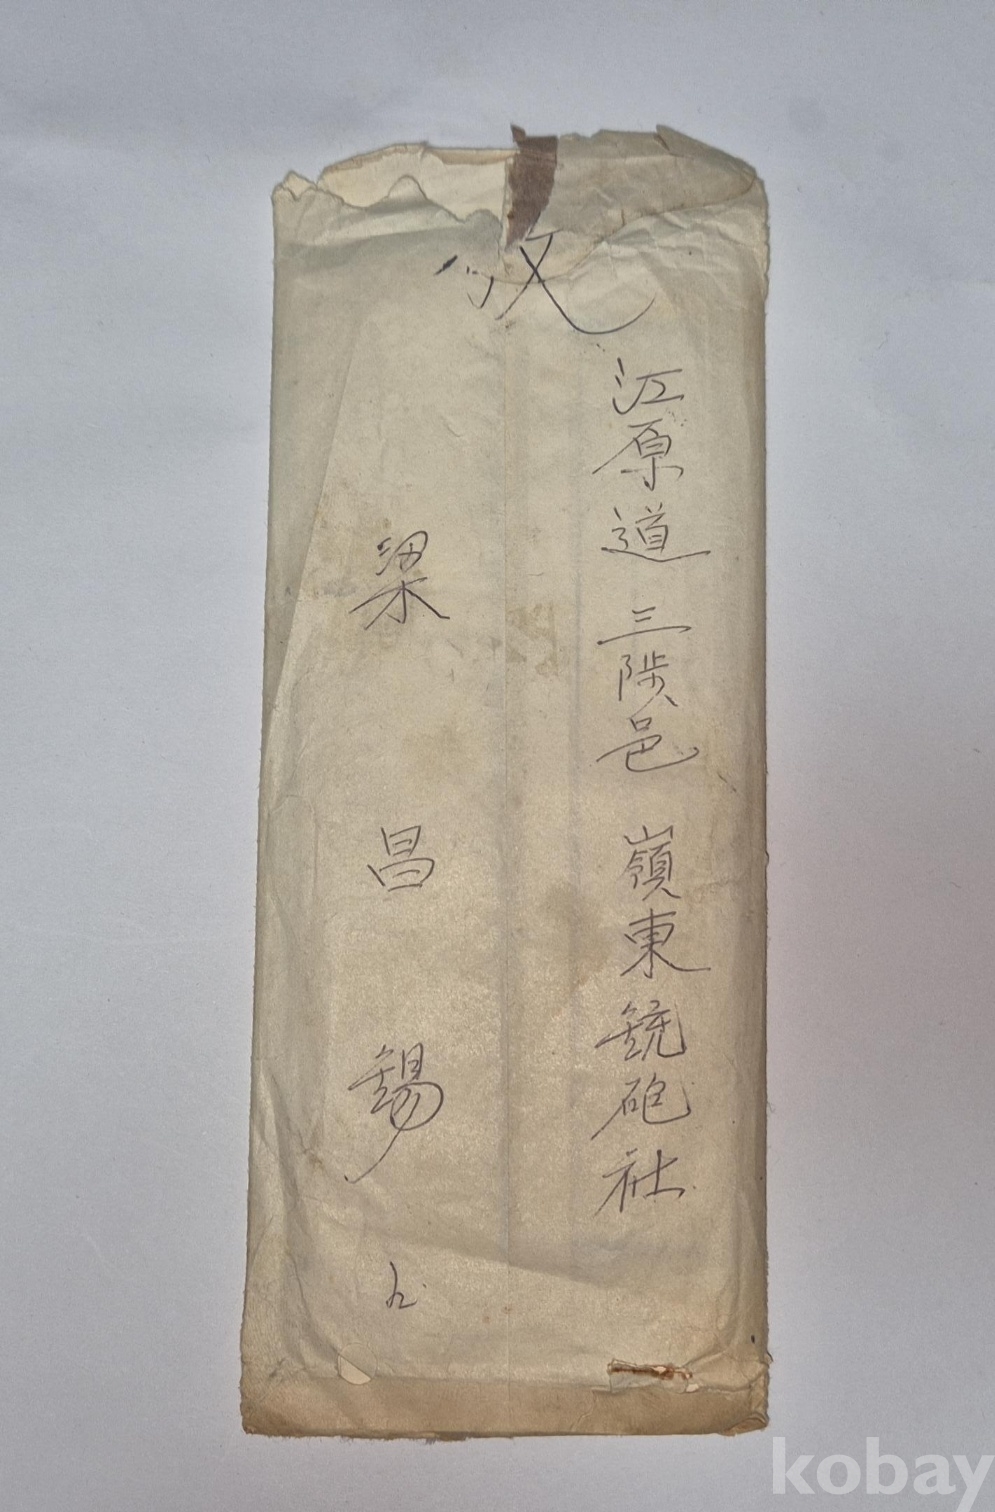 江原道 三陟邑 嶺東銃砲社
梁昌錫
kobay